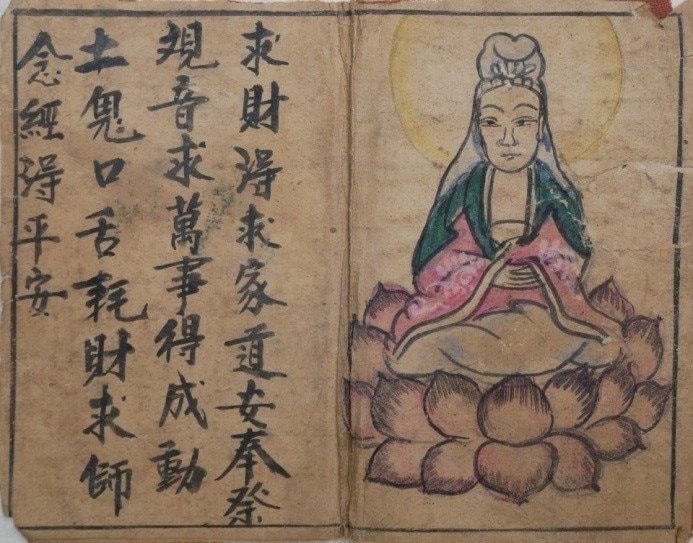 求財淂求家道安奉祭
覌音求萬事得成動
土鬼口舌耗財求师
念經淂平安